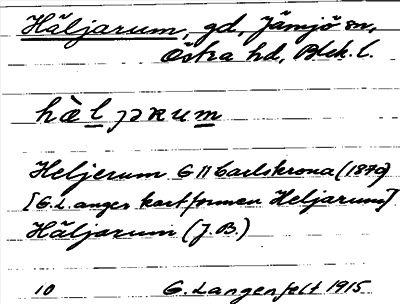 Häljarum, gd, Jämjö sn,
Östra hd, Blek. l.
hæ̀ljarum
Heljerum G II Carlskrona (1870)
[G.L. anger kartformen Heljarum]
Häljarum (J.B.)
10 G. Langenfelt 1915